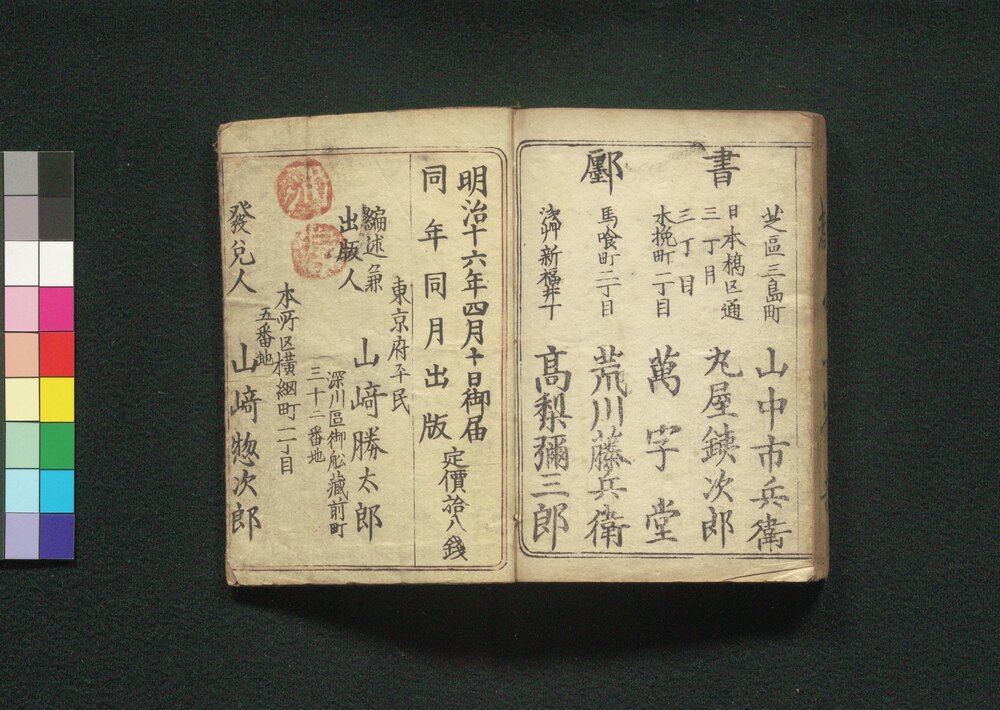 書
芝區三島町
山中市兵衛
日本橋区通
三丁目
丸屋銕次郎
三丁目
木挽町一丁目
萬字堂
鄽
馬喰町二丁目
荒川藤兵衛
浅艸新福井丁
髙梨彌三郎
明治十六年四月十日御届
同年同月出版
定價拾八錢
東京府平民
編述兼
出版人
山﨑勝太郎
深川區御舩藏前町
三十二番地
本所区横網町二丁目
五番地
發兌人
山﨑惣次郎